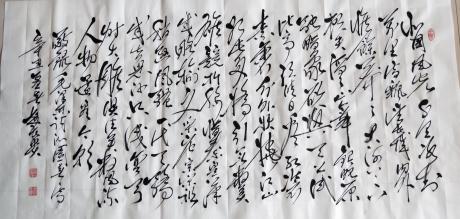 北国风光千里冰封
万里雪飘望长城内外
惟余莽莽大河上下
顿失滔滔山舞银蛇原
驰蜡象欲与天公试
比高须晴日看红装
素裹分外妖娆江山
如此多娇引无数英
雄竞折腰惜秦皇汉
武略输文采唐宗宋祖
稍逊风骚一代天骄
成吉思汗只识弯弓
射大雕俱往矣数风流
人物还看今朝
沁园春雪